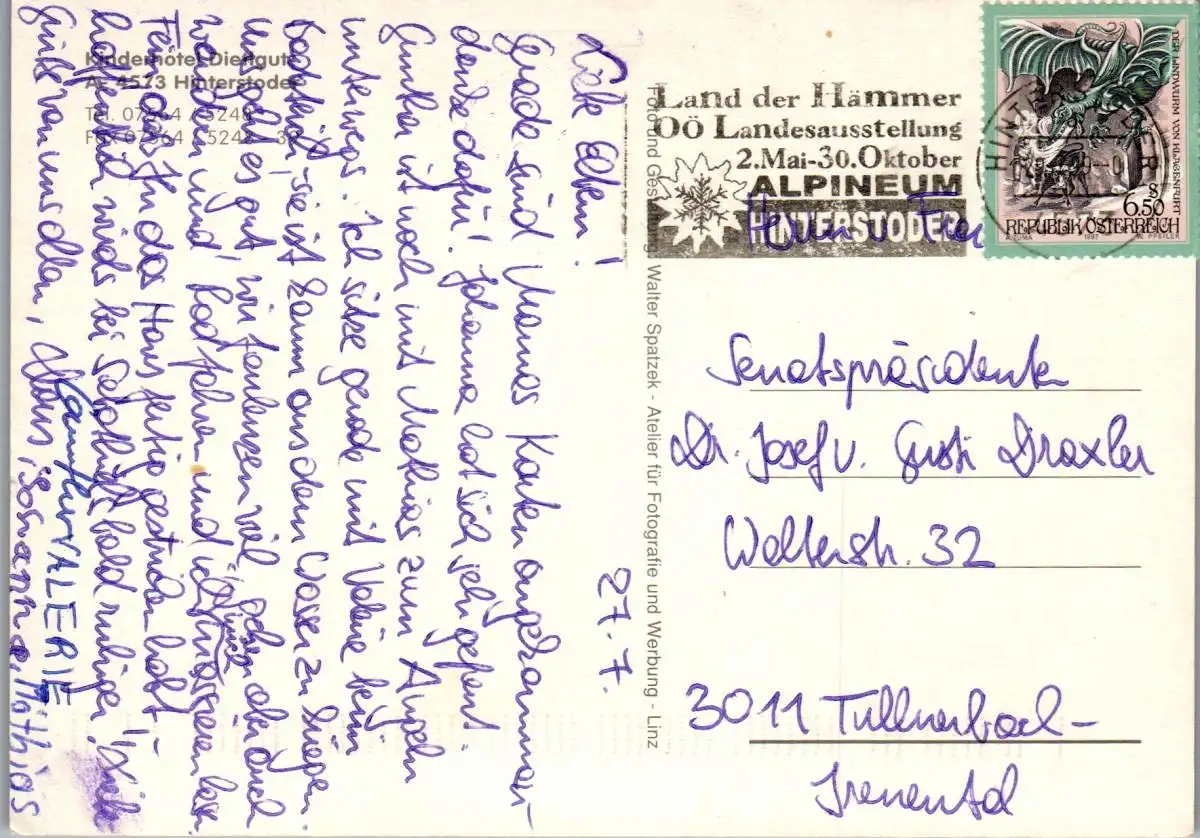 Kinderhotel Dietlgut
A- 4573 Hinterstoder
Tel. 07564 / 5248
Fax 07564 / 5248 - 39
27.7.
Liebe Alten!
Grade sind Mamas Karten angekommen -
danke dafür! Johanna hat sich sehr gefreut.
Gunther ist noch mit Mathias zum Angeln
unterwegs. Ich sitze gerade mit Valerie beim
Badeteich, sie ist kaum aus dem Wasser zu kriegen.
Uns geht es gut, wir faulenzen viel, gehen aber auch
wandern und radfahren und ich
Fein daß ihr das Haus fertig gestrichen habt -
hoffentlich wirds bei
Grüße von uns allen,
Johanna, Mathias
Gunther VALERIE
Foto und Gestaltung: Walter Spatzek - Atelier für Fotografie und Werbung - Linz
Land der Hämmer
OÖ Landesausstellung
2.Mai-30.Oktober
ALPINEUM
HINTERSTODER
HINTERSTODER
DER LINDWURM VON KLAGENFURT
S
6,50
REPUBLIK ÖSTERREICH
1997
W. PFEILER
Herrn u. Frau
Senatspräsidenten
Dr. Josef u. Gusti Draxler
Welterstr. 32
3011 Tullnerbach -
Irenental